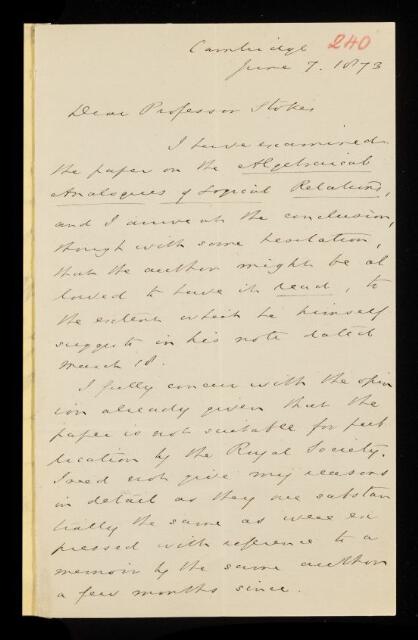 Cambridge 240
June 7. 1873
Dear Professor Stokes
I have examined
the paper on the Algebraical
Analogues of Logical Relations,
and I arrive at the conclusion,
though with some hesitation,
that the author might be al
lowed to have it read, to
the extent which he himself
suggests in his note dated
March 18.
I fully concur with the opin
ion already given that the
paper is not suitable for pub
lication by the Royal Society.
I need not give my reasons
in detail as they are substan
tially the same as were ex
pressed with reference to a
memoir by the same author
a few months since.